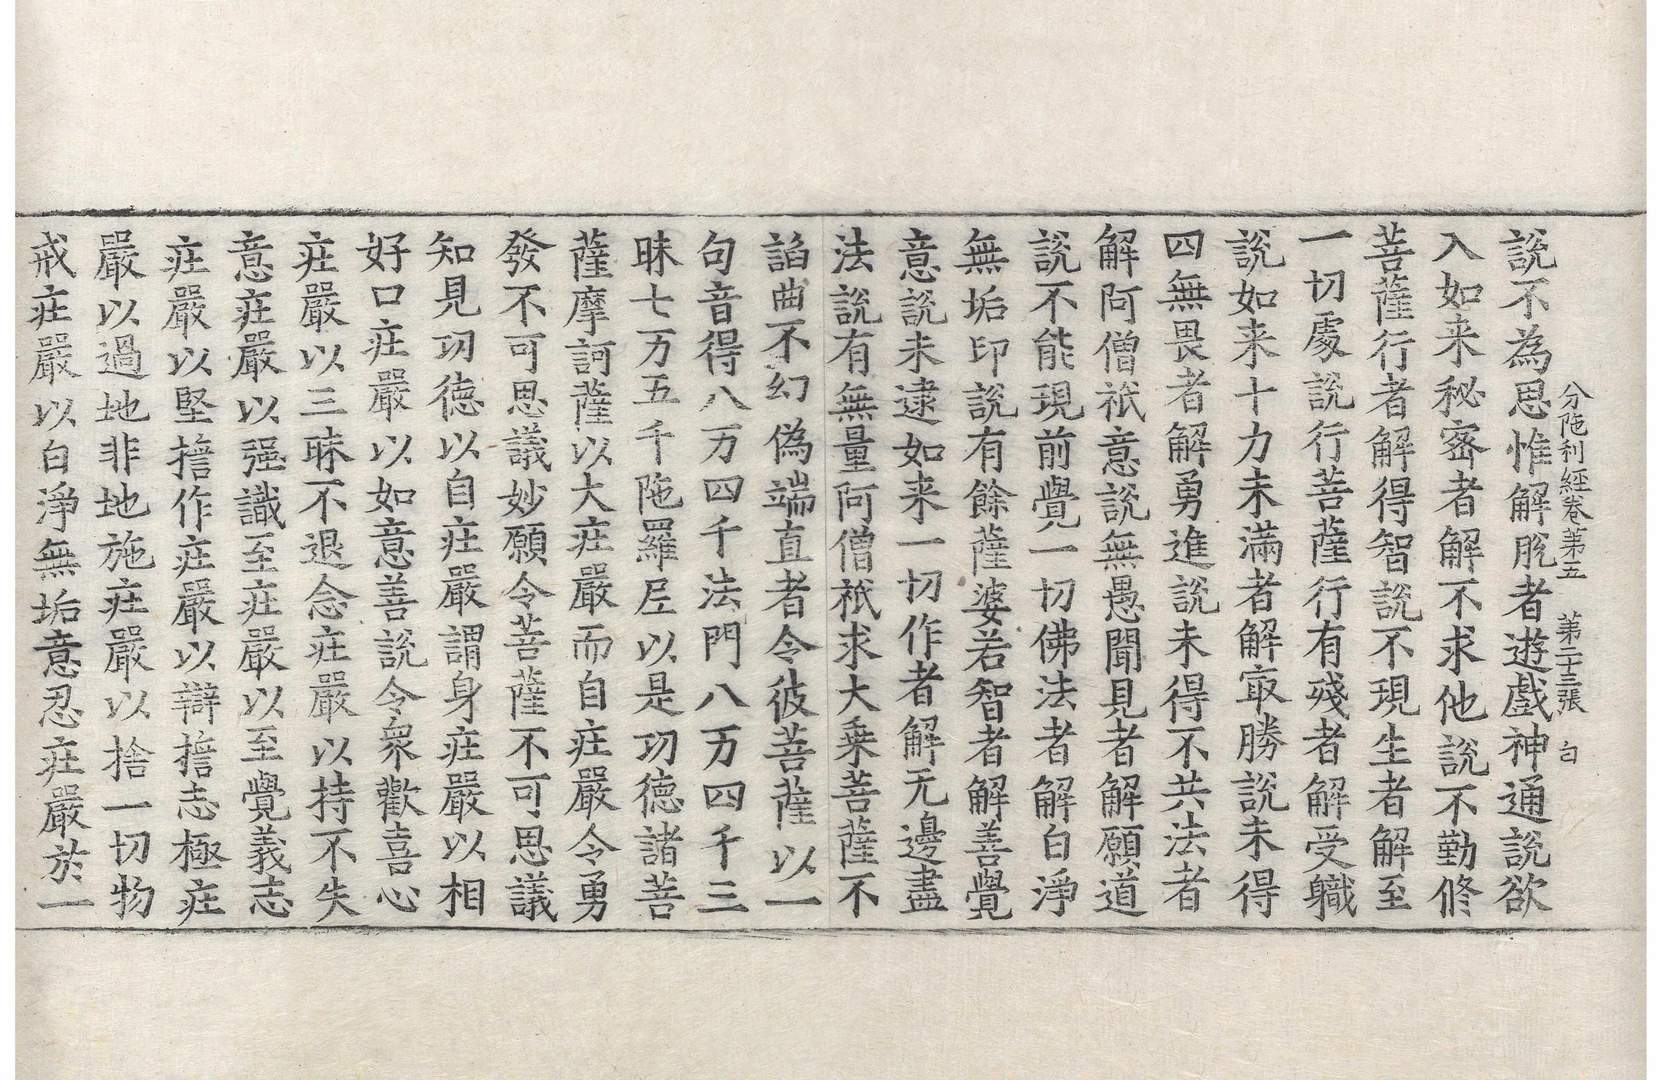 分陁利經卷第五　第二十三張　白
說不為思惟解脫者遊戲神通說欲
入如来秘密者解不求他說不勤修
菩薩行者解得智說不現生者解至
一切處說行菩薩行有殘者解受職
說如来十力未滿者解㝡勝說未得
四無畏者解勇進說未得不共法者
解阿僧祇意說無愚聞見者解願道
說不能現前覺一切佛法者解白淨
無垢印說有餘薩婆若智者解善覺
意說未逮如来一切作者解无邊盡
法說有無量阿僧祇求大乗菩薩不
諂曲不幻偽端直者令彼菩薩以一
句音得八万四千法門八万四千三
昧七万五千陁羅𡰱以是㓛德諸菩
薩摩訶薩以大㽵嚴而自㽵嚴令勇
發不可思議妙願令菩薩不可思議
知見㓛德以自㽵嚴謂身㽵嚴以相
好口㽵嚴以如意善說令衆歡喜心
㽵嚴以三昧不退念㽵嚴以持不失
意㽵嚴以强識至㽵嚴以至覺義志
㽵嚴以堅擔作㽵嚴以辯擔志極㽵
嚴以過地非地施㽵嚴以捨一切物
戒㽵嚴以白淨無垢意忍㽵嚴於一